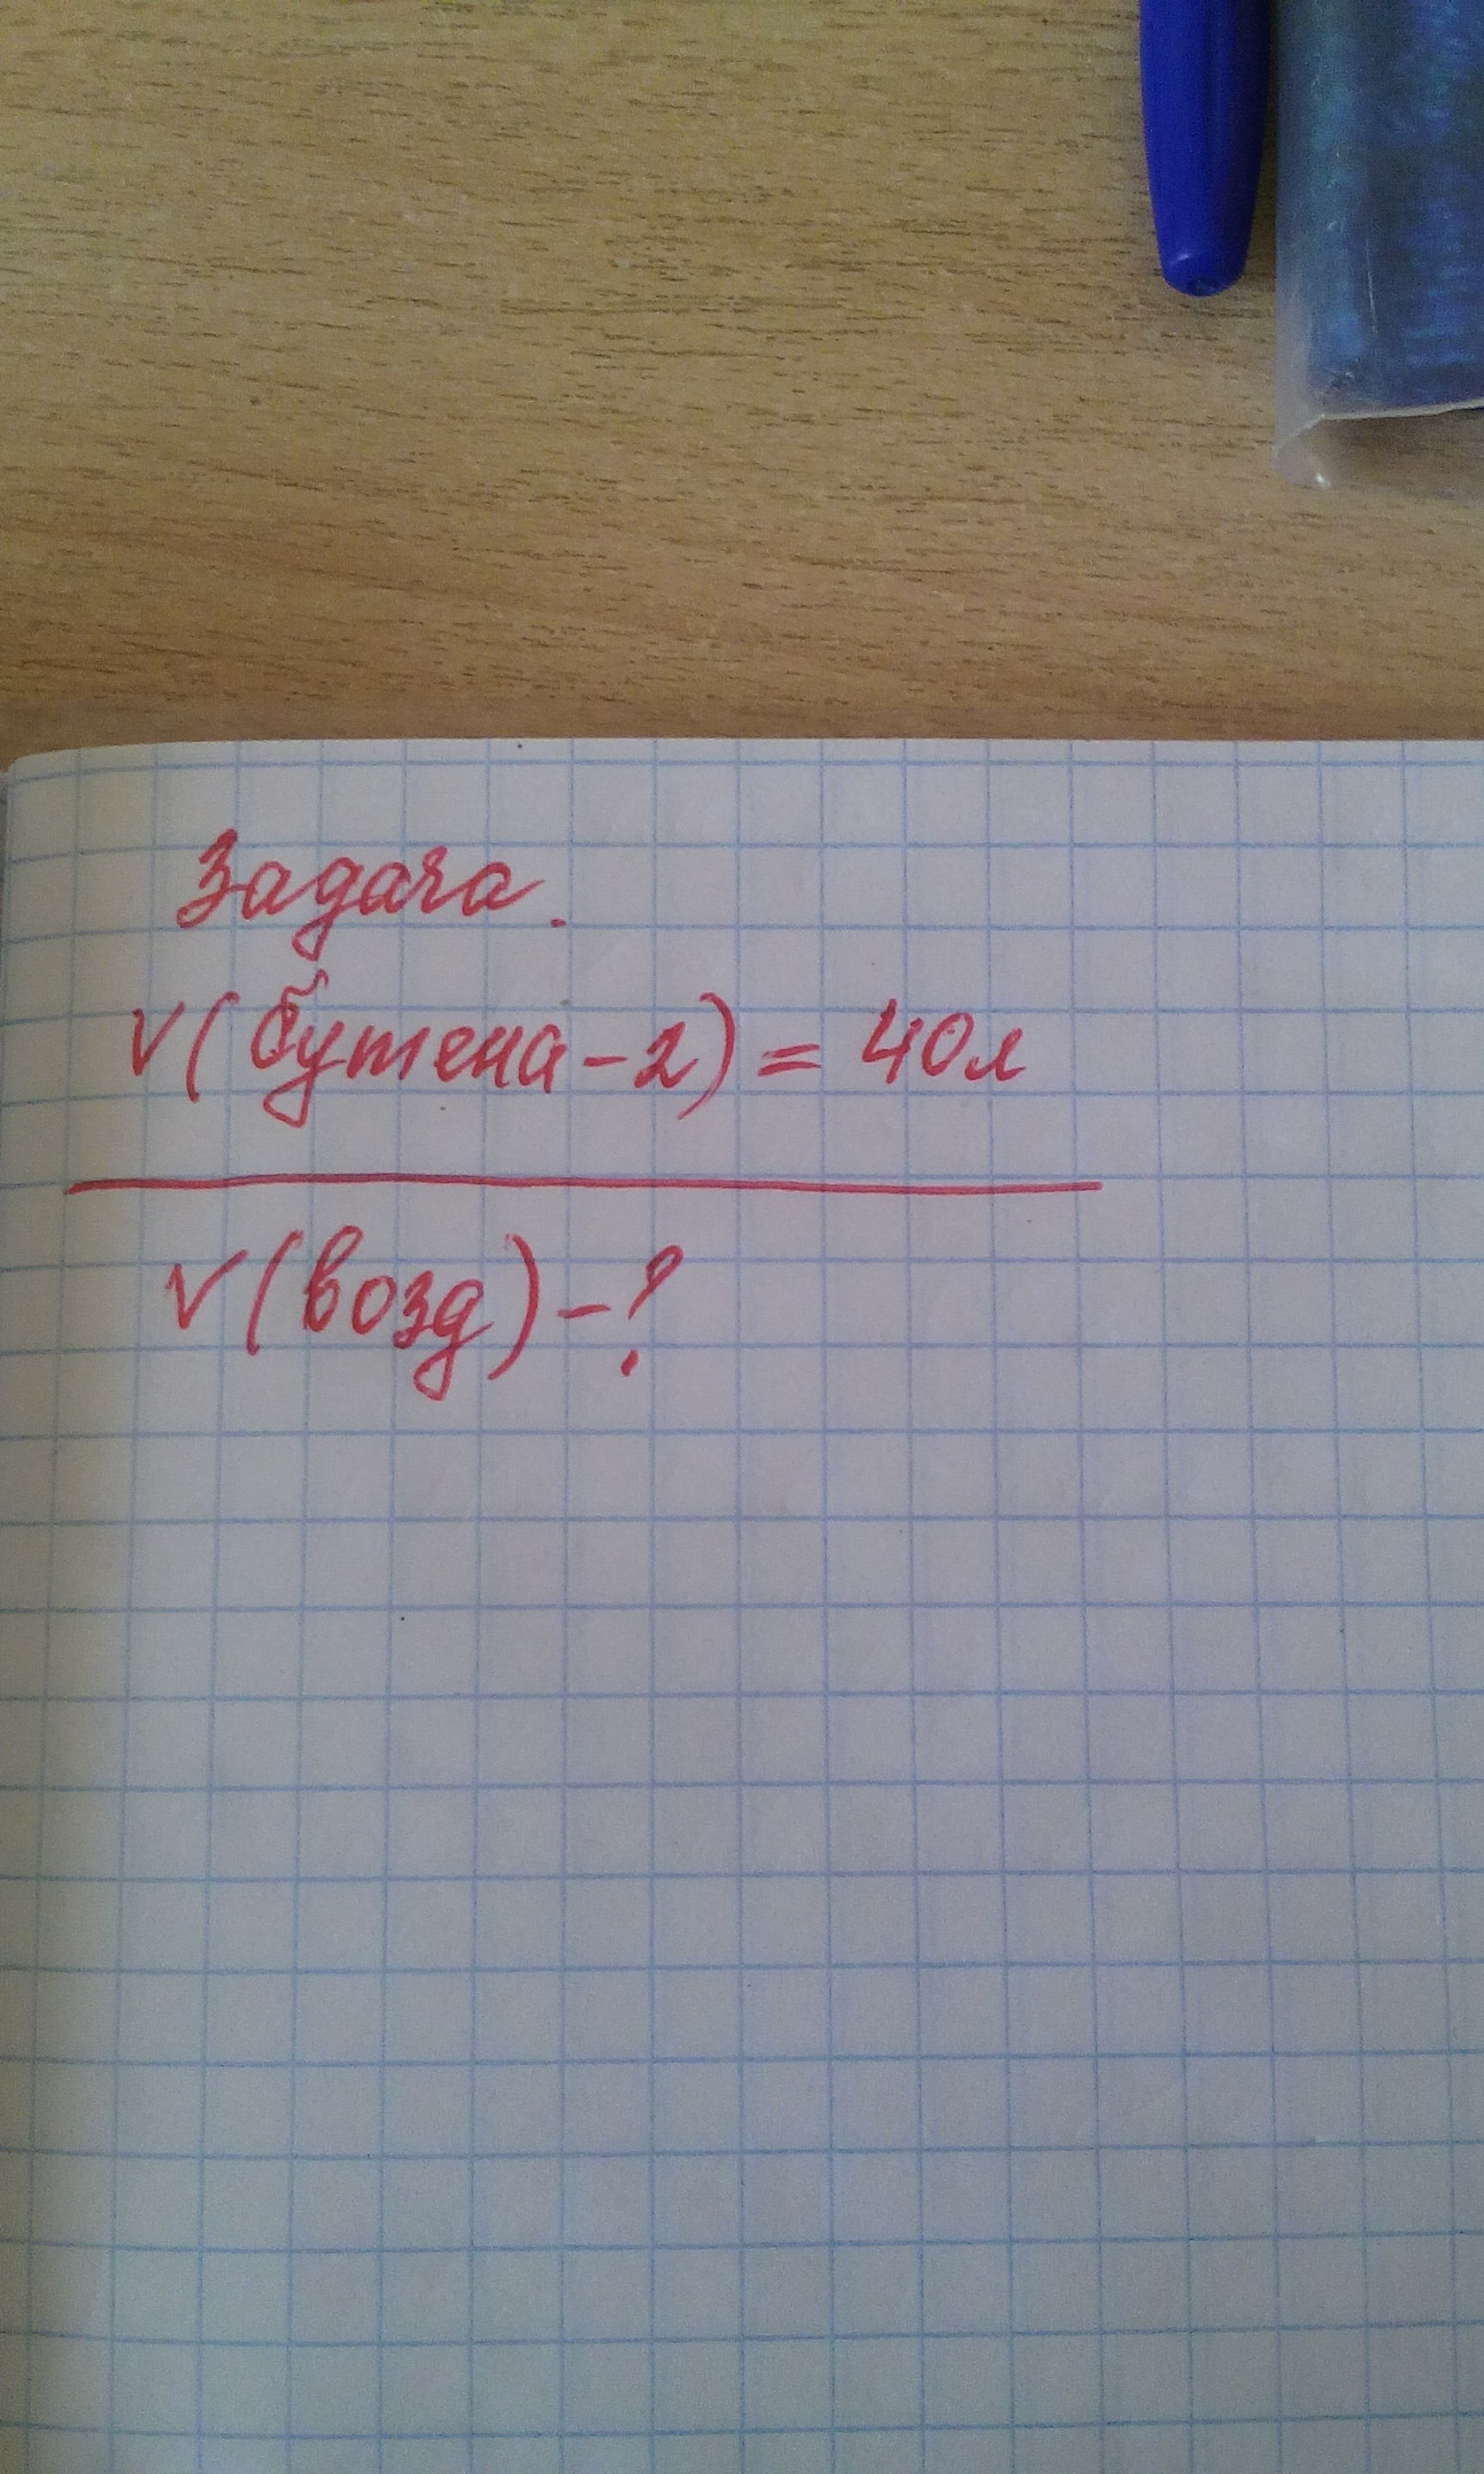 Задача.
V(бутена-2) = 40л
V(возд) - ?